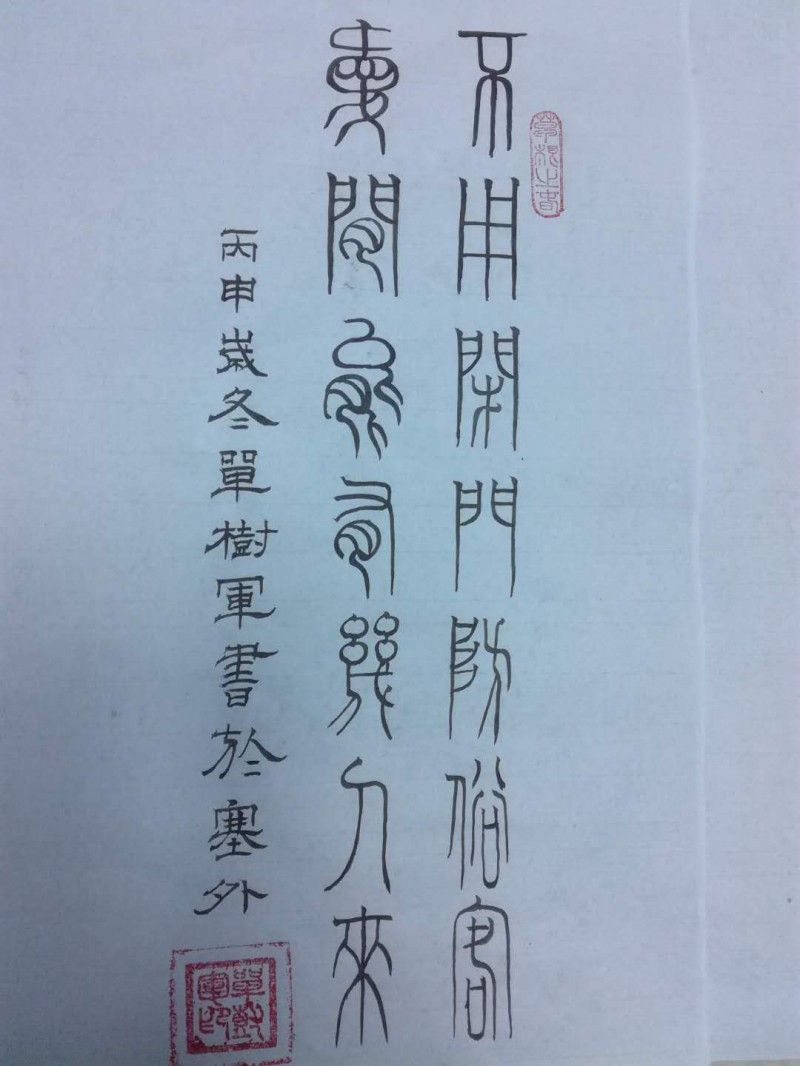 不用閉門防俗客
愛閒能有幾人來
丙申歲冬單樹軍書於塞外
單樹軍印